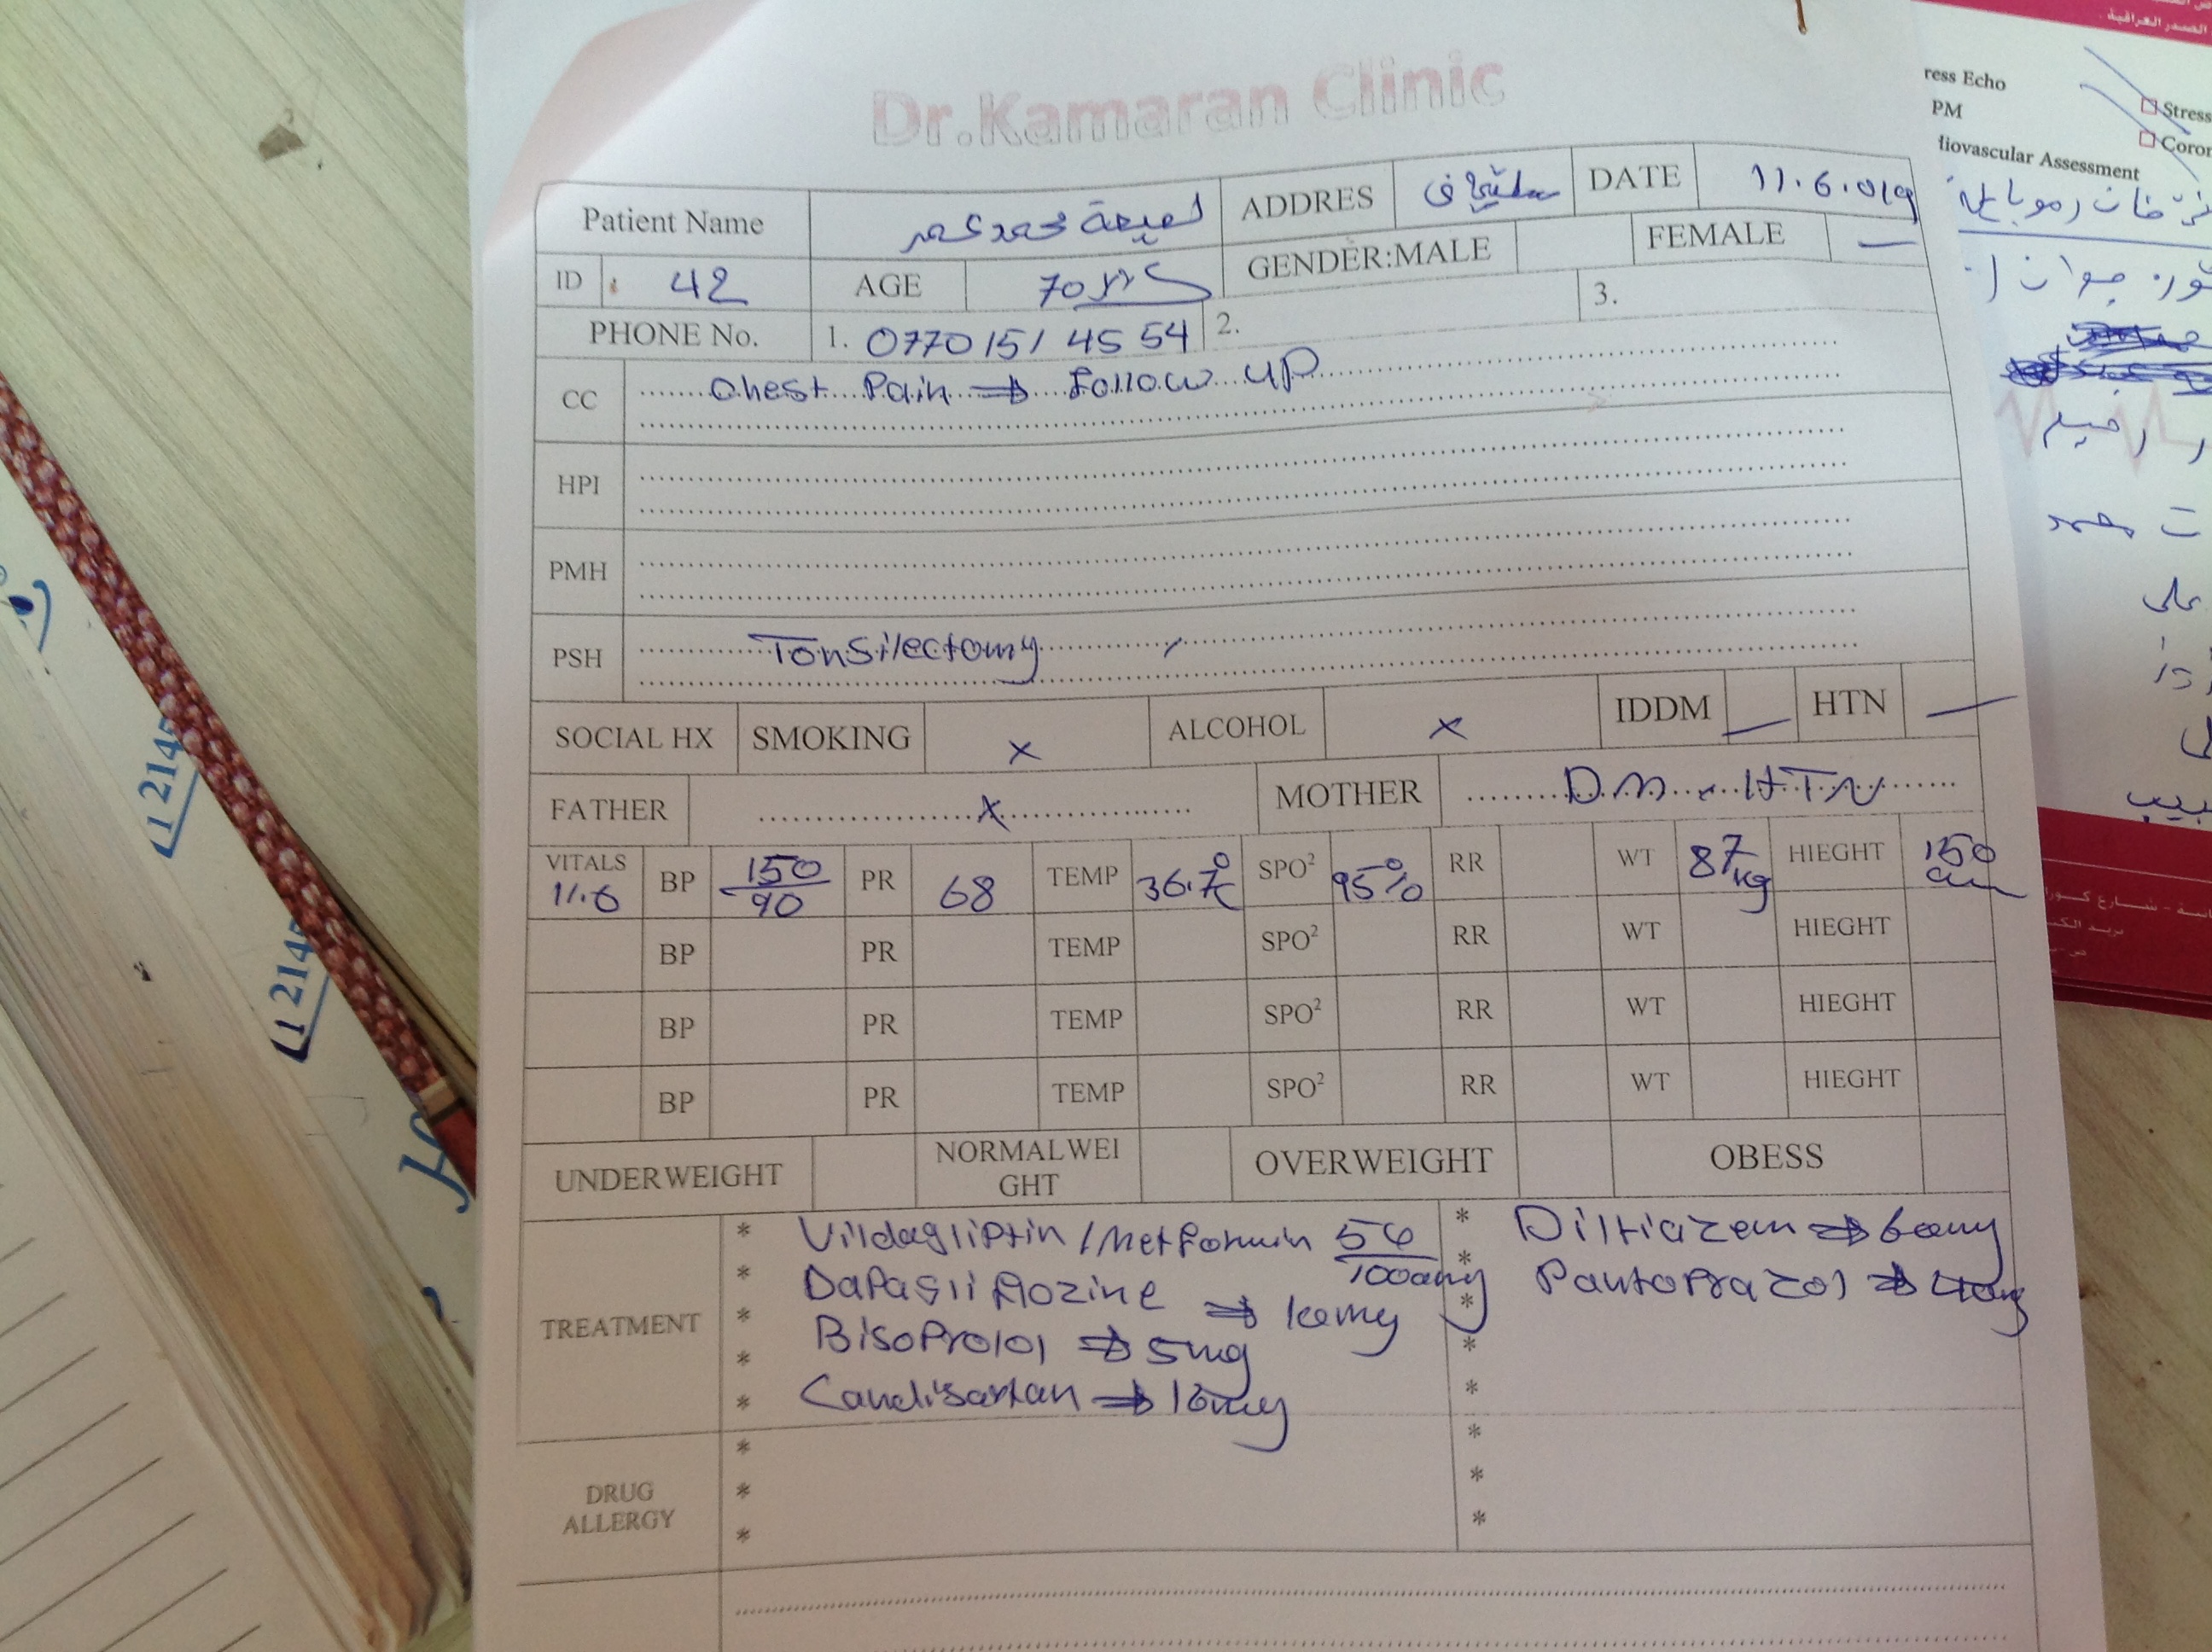 Dr.Kamaran Clinic
Patient Name محمد عمر ADDRES DATE 11.6.019
ID 42 AGE 70 سال GENDER:MALE FEMALE —
PHONE No. 1. 0770 151 45 54 2. 3.
CC Chest Pain ⇒ Follow up
HPI
PMH
PSH Tonsilectomy
SOCIAL HX SMOKING x ALCOHOL x IDDM — HTN —
FATHER x MOTHER D.M HTN
VITALS 11.6 BP 150/90 PR 68 TEMP 36.7°c SPO² 95% RR WT 87 kg HIEGHT 150 cm
BP PR TEMP SPO² RR WT HIEGHT
BP PR TEMP SPO² RR WT HIEGHT
BP PR TEMP SPO² RR WT HIEGHT
UNDERWEIGHT NORMALWEI GHT OVERWEIGHT OBESS
TREATMENT
* Vildagliptin / Metformin 50/1000mg
* Dapagliflozine ⇒ 10mg
* Bisoprolol ⇒ 5mg
* Candisartan ⇒ 16mg
* Diltiazem ⇒ 60mg
* Pantoprazol ⇒ 40mg
DRUG ALLERGY
ress Echo
PM
Stress
Coron
diovascular Assessment
رحيم
على
1 214
1 214